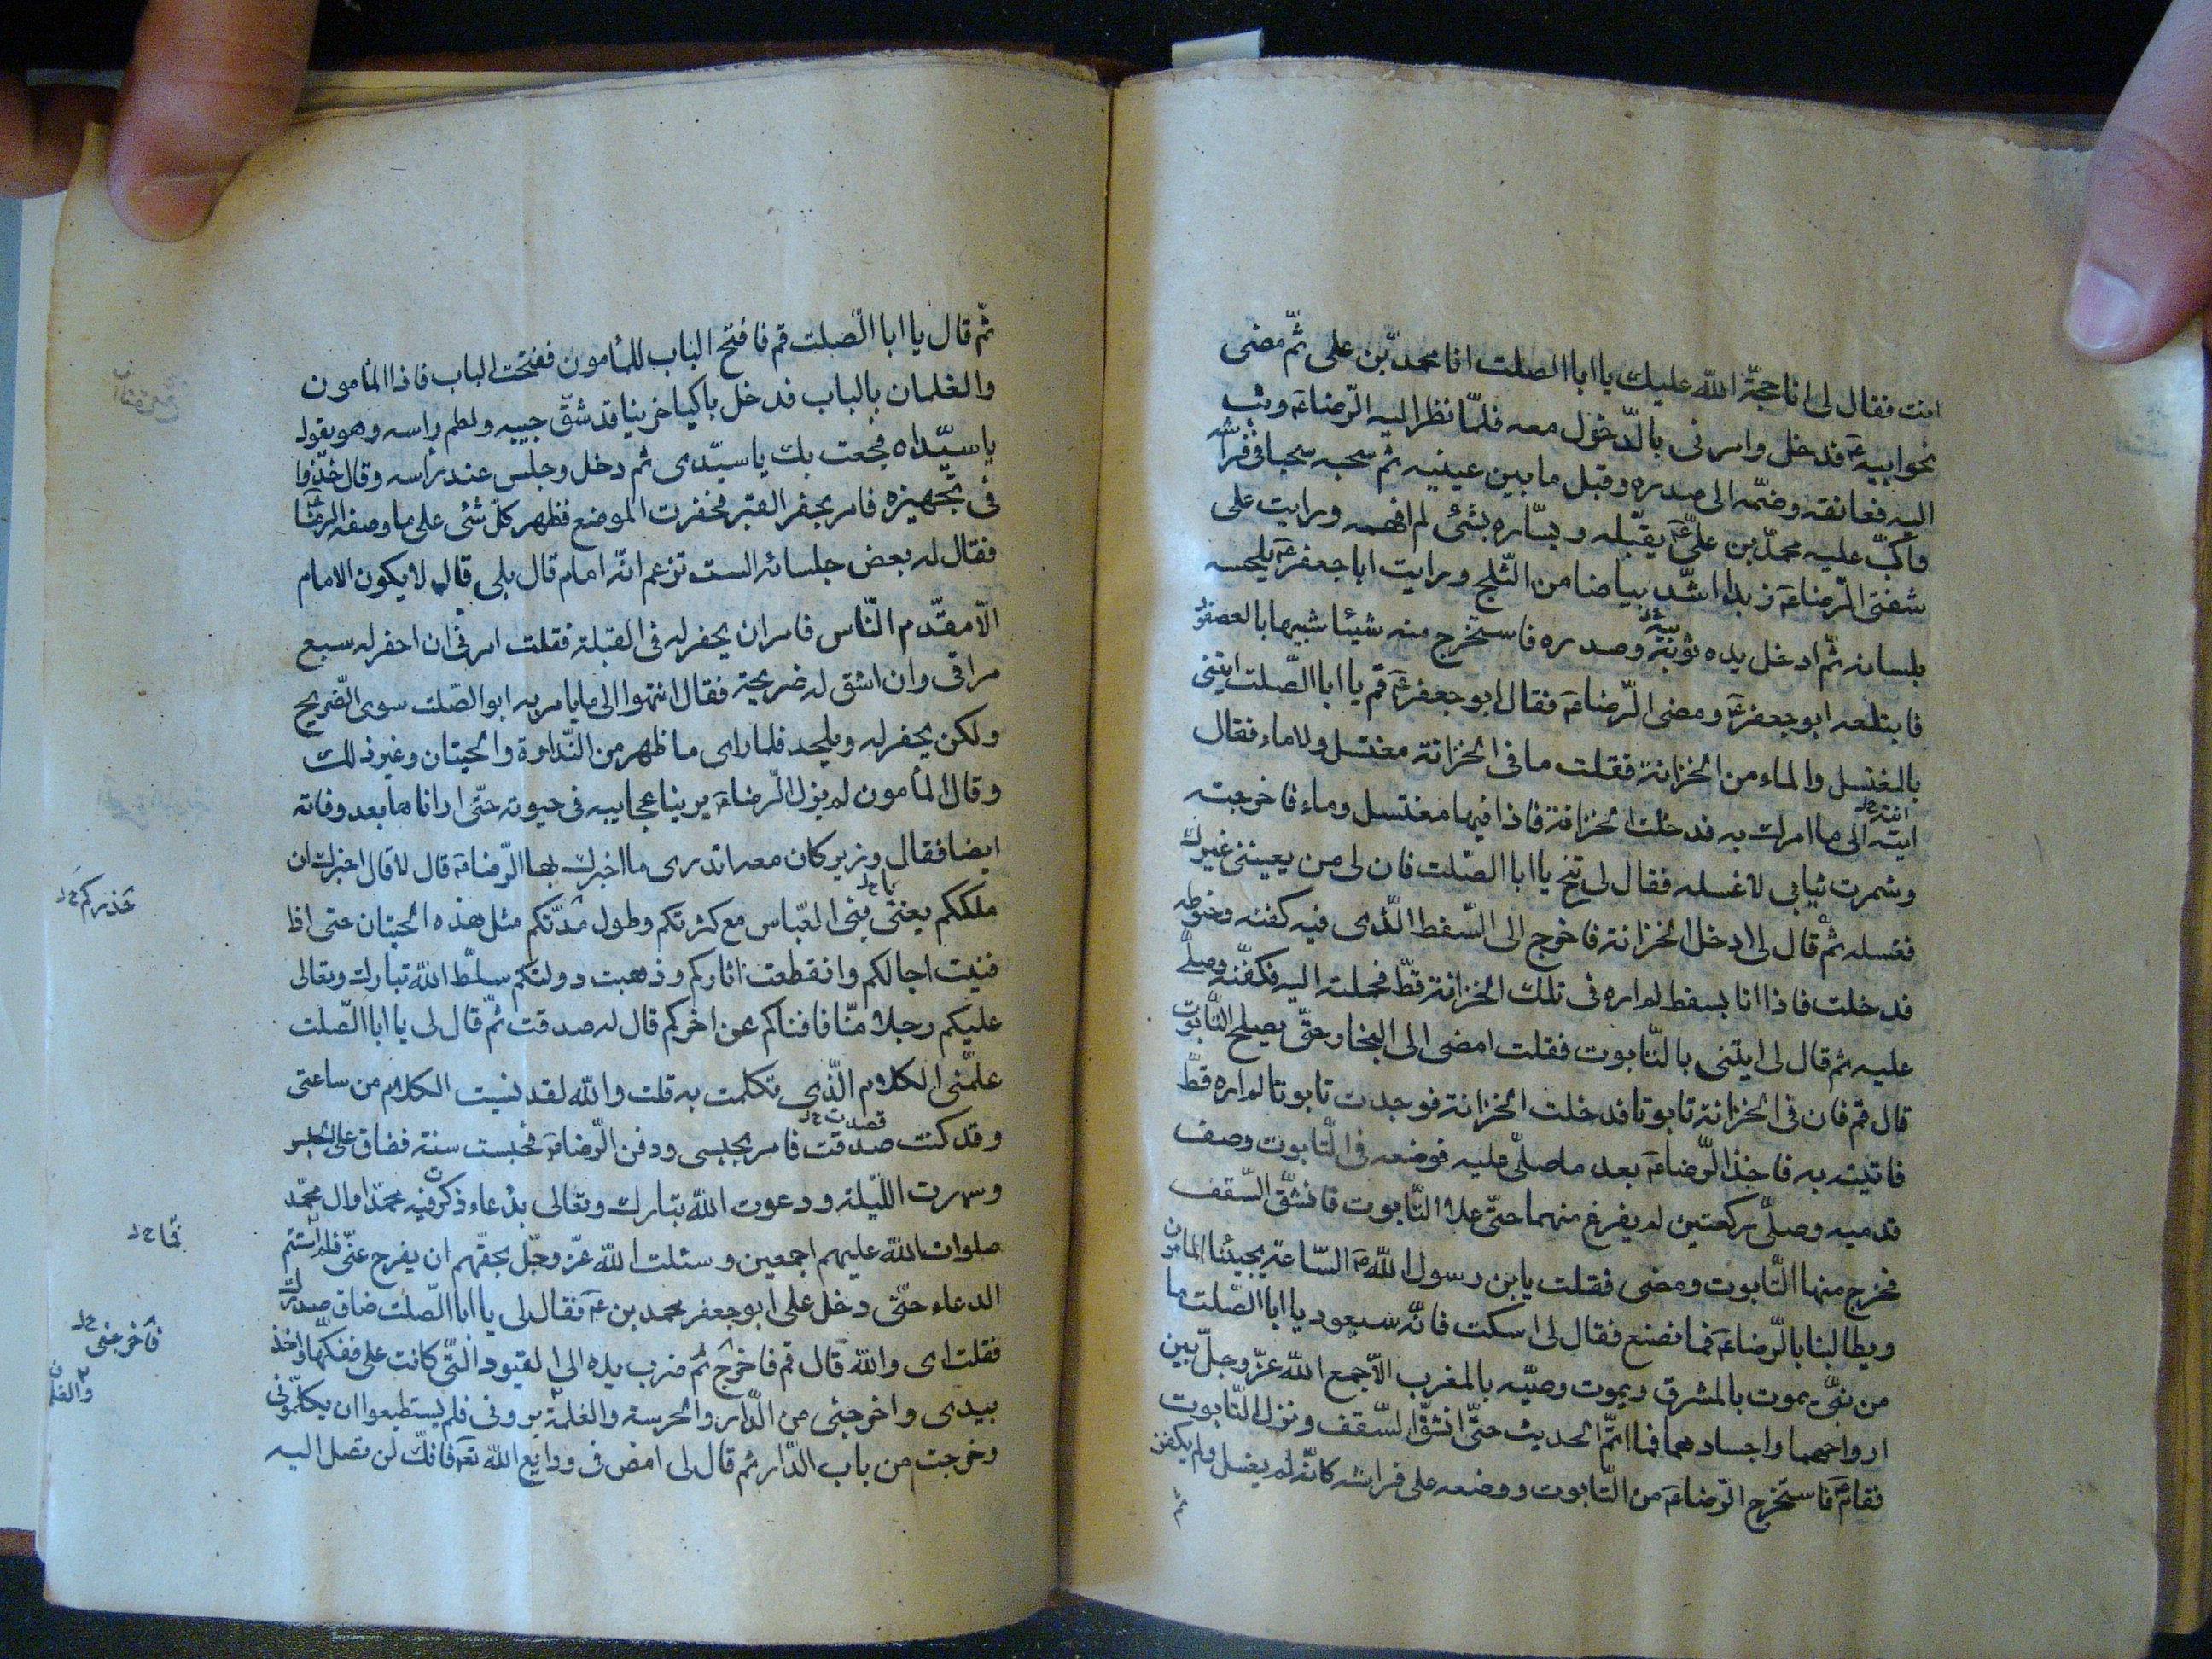 انت فقال لى انا حجّة اللّه عليك يا ابا الصلت انا محمد بن على ثمّ مضى
نحو ابيه ع فدخل وامرنى بالدّخول معه فلمّا نظر اليه الرّضا ع وثب
اليه فعانقه وضمّه الى صدره وقبل ما بين عينيه ثم سحبه سحبا فى فراشه
واكبّ عليه محمّد بن علىّ ع يقبّله ويسّاره بشئ لم افهمه ورايت على
شفتى الرّضا ع زبدا اشّد بياضا من الثّلج ورايت ابا جعفر ع يلحسه
بلسانه ثمّ ادخل يده ثوبيه وصدره فاستخرج منه شيئا شبيها بالعصفور
فابتلعه ابو جعفر ع ومضى الرّضا ع فقال ابو جعفر ع قم يا ابا الصّلت ايتنى
بالمغتسل والماء من الخزانة فقلت ما فى الخزانة مغتسل ولا ماء فقال
ايته الى ما امرك به فدخلت الخزانة فاذا فيها مغتسل وماء فاخرجته
وشمرت ثيابى لاغسله فقال لى تنح يا ابا الصّلت فان لى من يعيننى غيرك
فغسله ثمّ قال لى ادخل الخزانة فاخرج الى السّفط الّذى فيه كفنه وحنوطه
فدخلت فاذا انا بسفط لم اره فى تلك الخزانة قطّ فحملته اليه فكفّنه وصلّى
عليه ثم قال لى ايتنى بالتّابوت فقلت امضى الى النجار حتّى يصلح التّابوت
قال قم فان فى الخزانة تابوتا فدخلت الخزانة فوجدت تابوتا لم اره قطّ
فاتيته به فاخذ الرّضا ع بعد ما صلّى عليه فوضعه فى التّابوت وصف
قدميه وصلّى ركعتين لم يفرغ منهما حتّى علا التّابوت فانشقّ السّقف
فخرج منها التّابوت ومضى فقلت يابن رسول اللّه ص السّاعة يجيئنا المامون
ويطالبنا بالرّضا ع فما نصنع فقال لى اسكت فانّه سيعود يا ابا الصّلت ما
من نبىّ يموت بالمشرق ويموت وصيّه بالمغرب الّا جمع اللّه عزّ وجلّ بين
ارواحهما واجسادهما فما اتمّ الحديث حتّى انشقّ السّقف ونزل التّابوت
فقام ع فاستخرج الرّضا ع من التّابوت ووضعه على فراشه كانّه لم يغسل ولم يكفن
ثمّ قال يا ابا الصّلت قم فافتح الباب للمأمون ففتحت الباب فاذا المأمون
والغلمان بالباب فدخل باكيا حزينا قد شقّ جيبه ولطم راسه وهو يقول
يا سيّداه فجعت بك يا سيّدى ثم دخل وجلس عند راسه وقال خذوا
فى تجهيزه فامر بحفر القبر فحفرت الموضع فظهر كلّ شئ على ما وصفه الرضا ع
فقال له بعض جلسائه الست تزعم انّه امام قال بلى قال لا يكون الامام
الّا مقدّم النّاس فامر ان يحفر له فى القبلة فقلت امرنى ان احفر له سبع
مراقى وان اشق له ضريحة فقال انتهوا الى ما يامر به ابو الصّلت سوى الضّريح
ولكن يحفر له ويلحد فلما راى ما ظهر من النّداوة والحيتان وغير ذلك
وقال المأمون لم يزل الرّضا ع يرينا عجايبه فى حيوته حتّى اراناها بعد وفاته
ايضا فقال وزير كان معه اتدرى ما اخبرك بها الرّضا ع قال لا قال اخبرك ان
ملككم يعنى يا خ بنى العبّاس مع كثرتكم وطول مدّتكم مثل هذه الحيتان حتى اذا
فنيت اجالكم وانقطعت اثاركم وذهبت دولتكم سلّط اللّه تبارك وتعالى
عليكم رجلا منّا فافناكم عن اخركم قال له صدقت ثمّ قال لى يا ابا الصّلت
علّمنى الكلام الّذى تكلمت به قلت واللّه لقد نسيت الكلام من ساعتى
وقد كنت صدقت فامر بحبسى ودفن الرّضا ع فحبست سنة فضاق علىّ الحبس
وسهرت اللّيلة ودعوت اللّه تبارك وتعالى بدعاء ذكرت فيه محمّدا وال محمّد
صلوات اللّه عليهم اجمعين وسئلت اللّه عزّ وجلّ بحقّهم ان يفرج عنّى فلم استتم
الدعاء حتّى دخل على ابو جعفر محمد بن ع فقال لى يا ابا الصّلت ضاق صدرك
فقلت اى واللّه قال قم فاخرج ثم ضرب يده الى القيود الّتى كانت على ففكّها واخذ
بيدى واخرجنى من الدّار والحرسة والغلمة يرونى فلم يستطيعوا ان يكلّمونى
وخرجت من باب الدّار ثم قال لى امض فى ودايع اللّه تع فانّك لن تصل اليه
حذركم خ
فما خ
فاخرجنى خ